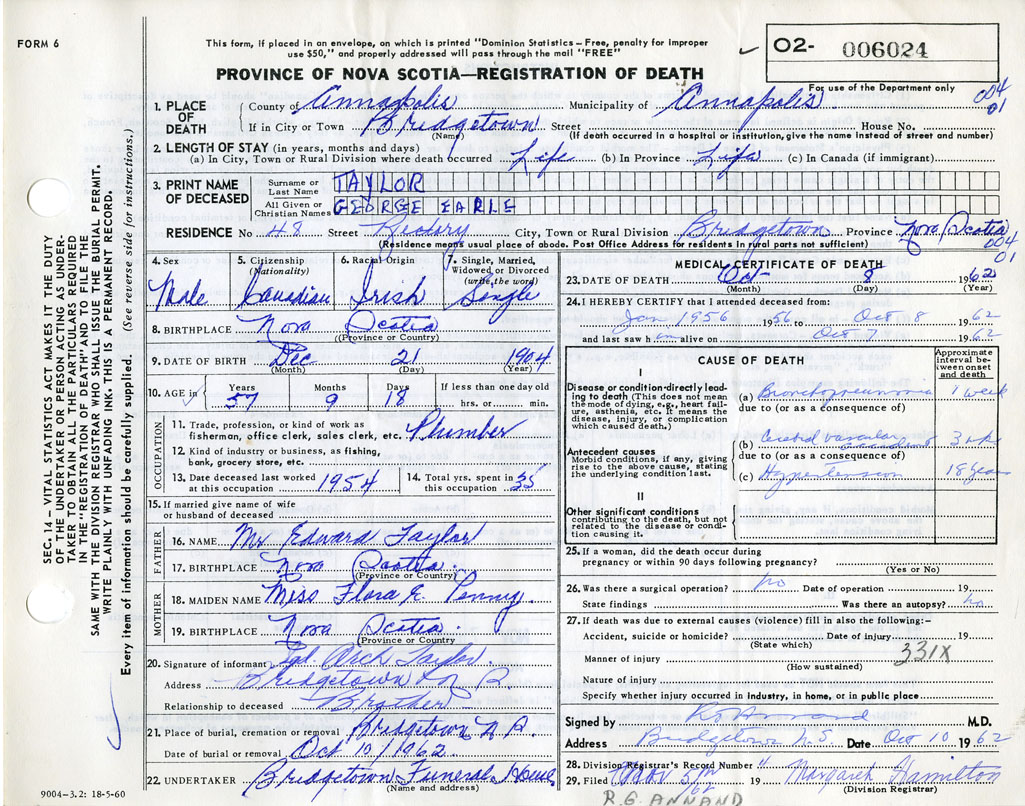 FORM 6
This form, if placed in an envelope, on which is printed "Dominion Statistics – Free, penalty for improper
use $50," and properly addressed will pass through the mail "FREE"
02- 006024
For use of the Department only
PROVINCE OF NOVA SCOTIA—REGISTRATION OF DEATH
004
01
1. PLACE OF DEATH
County of Annapolis Municipality of Annapolis
If in City or Town Bridgetown Street House No.
(Name) (If death occurred in a hospital or institution, give the name instead of street and number)
2. LENGTH OF STAY (in years, months and days)
(a) In City, Town or Rural Division where death occurred Life (b) In Province Life (c) In Canada (if immigrant)
3. PRINT NAME OF DECEASED
Surname or Last Name TAYLOR
All Given or Christian Names GEORGE EARLE
RESIDENCE No 48 Street Rectory City, Town or Rural Division Bridgetown Province Nova Scotia
(Residence means usual place of abode. Post Office Address for residents in rural parts not sufficient)
004
01
4. Sex Male
5. Citizenship (Nationality) Canadian
6. Racial Origin Irish
7. Single, Married, Widowed or Divorced (write the word) Single
8. BIRTHPLACE Nova Scotia
(Province or Country)
9. DATE OF BIRTH Dec 21 1904
(Month) (Day) (Year)
10. AGE in Years 57 Months 9 Days 18 If less than one day old
hrs. or min.
OCCUPATION
11. Trade, profession, or kind of work as
fisherman, office clerk, sales clerk, etc. Plumber
12. Kind of industry or business, as fishing,
bank, grocery store, etc.
13. Date deceased last worked
at this occupation 1954
14. Total yrs. spent in
this occupation 35
15. If married give name of wife
or husband of deceased
FATHER
16. NAME Mr Edward Taylor
17. BIRTHPLACE Nova Scotia
(Province or Country)
MOTHER
18. MAIDEN NAME Miss Flora E. Penny
19. BIRTHPLACE Nova Scotia
(Province or Country
20. Signature of informant Arch Taylor
Address Bridgetown
Relationship to deceased Brother
21. Place of burial, cremation or removal Bridgetown N.S.
Date of burial or removal Oct 10/1962
22. UNDERTAKER Bridgetown Funeral Home
(Name and address)
MEDICAL CERTIFICATE OF DEATH
23. DATE OF DEATH Oct 8 1962
(Month) (Day) (Year)
24. I HEREBY CERTIFY that I attended deceased from:
Jan 1956 1956 to Oct 8 1962
and last saw him alive on Oct 7 1962
CAUSE OF DEATH
Approximate interval between onset and death
I
Disease or condition directly leading to death (This does not mean the mode of dying, e.g., heart failure, asthenia, etc. It means the disease, injury, or complication which caused death.)
(a) Bronchopneumonia 1 week
due to (or as consequence of)
Antecedent causes
Morbid conditions, if any, giving rise to the above cause, stating the underlying condition last.
(b) Cerebral vascular 3 wks
due to (or as a consequence of)
(c) Hypertension 18 years
II
Other significant conditions
contributing to the death, but not related to the disease or condition causing it.
25. If a woman, did the death occur during
pregnancy or within 90 days following pregnancy?
(Yes or No)
26. Was there a surgical operation? no Date of operation 19
State findings Was there an autopsy? no
27. If death was due to external causes (violence) fill in also the following:-
Accident, suicide or homicide? Date of injury 19
(State which)
Manner of injury 331X
(How sustained)
Nature of injury
Specify whether injury occurred in industry, in home, or in public place
Signed by R G Annand M.D.
Address Bridgetown N.S Date Oct 10 1962
28. Division Registrar's Record Number 11
29. Filed Nov 5th 19 62 Margaret Hamilton
(Division Registrar)
R.G. ANNAND
SEC. 14 – VITAL STATISTICS ACT MAKES IT THE DUTY
OF THE UNDERTAKER OR PERSON ACTING AS UNDER-
TAKER TO OBTAIN ALL THE PARTICULARS REQUIRED
IN THE "REGISTRATION OF DEATH" AND TO FILE THE
SAME WITH THE DIVISION REGISTRAR WHO SHALL ISSUE THE BURIAL PERMIT.
WRITE PLAINLY WITH UNFADING INK. THIS IS A PERMANENT RECORD.
Every item of information should be carefully supplied. (See reverse side for instructions.)
9004–3.2: 18-5-60